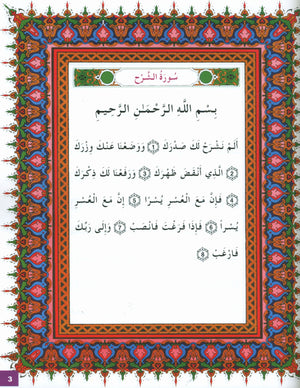 سُورَةُ الشَّرْح
بِسْمِ اللَّهِ الرَّحْمَـٰنِ الرَّحِيمِ
أَلَمْ نَشْرَحْ لَكَ صَدْرَكَ ﴿1﴾ وَوَضَعْنَا عَنْكَ وِزْرَكَ
﴿2﴾ الَّذِي أَنْقَضَ ظَهْرَكَ ﴿3﴾ وَرَفَعْنَا لَكَ ذِكْرَكَ
﴿4﴾ فَإِنَّ مَعَ الْعُسْرِ يُسْرًا ﴿5﴾ إِنَّ مَعَ الْعُسْرِ
يُسْراً ﴿6﴾ فَإِذَا فَرَغْتَ فَانْصَبْ ﴿7﴾ وَإِلَى رَبِّكَ
فَارْغَبْ ﴿8﴾
3